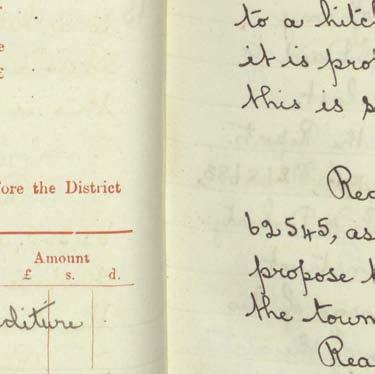 e
£
fore the District
Amount
£ s. d.
diture
to a hitch
it is pro
this is s
Rea
62545, as
propose t
the town
Rea